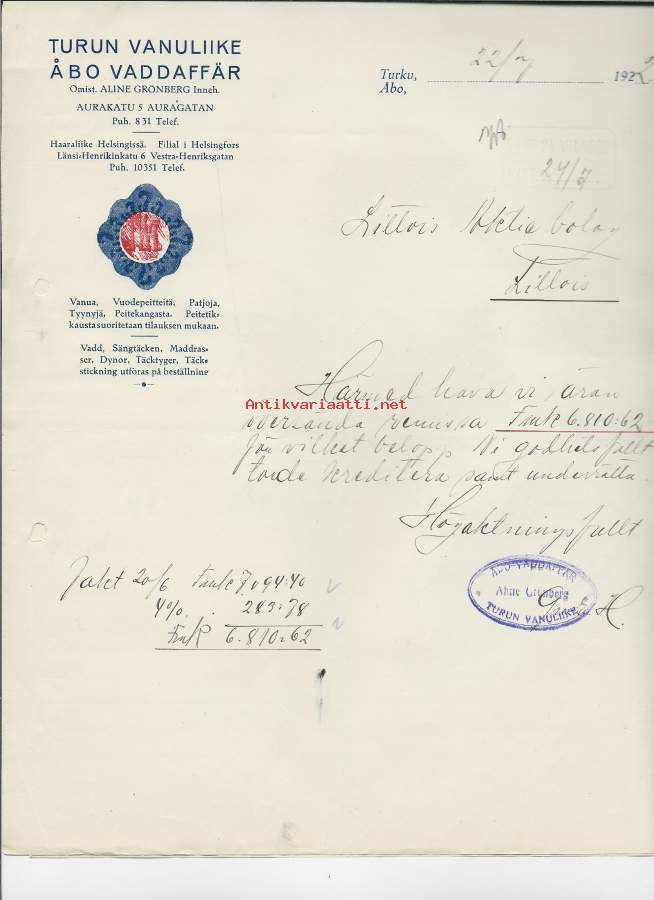 TURUN VANULIIKE
ÅBO VADDAFFÄR
Omist. ALINE GRÖNBERG Inneh.
AURAKATU 5 AURAGATAN
Puh. 831 Telef.
Haaraliike Helsingissä. Filial i Helsingfors
Länsi-Henrikinkatu 6 Vestra-Henriksgatan
Puh. 10351 Telef.
Vanua, Vuodepeitteitä, Patjoja,
Tyynyjä, Peitekangasta. Peitetik-
kausta suoritetaan tilauksen mukaan.
Vadd, Sängtäcken, Maddras-
ser, Dynor, Täcktyger, Täck-
stickning utföras på beställning
Turku, 22/7 1922
Åbo,
24/7
Littois Aktiebolag
Littois
Härmed hava vi äran
översända remissa Fmk 6.810:62
för vilket belopp Ni godhetsfullt
torde kreditera samt underrätta
Högaktningsfullt
ÅBO VADDAFFÄR
Aline Grönberg
TURUN VANULIIKE
Fakt 20/6 Fmk 7.094:40
4% 283:78
Fmk 6.810:62
Antikvariaatti.net